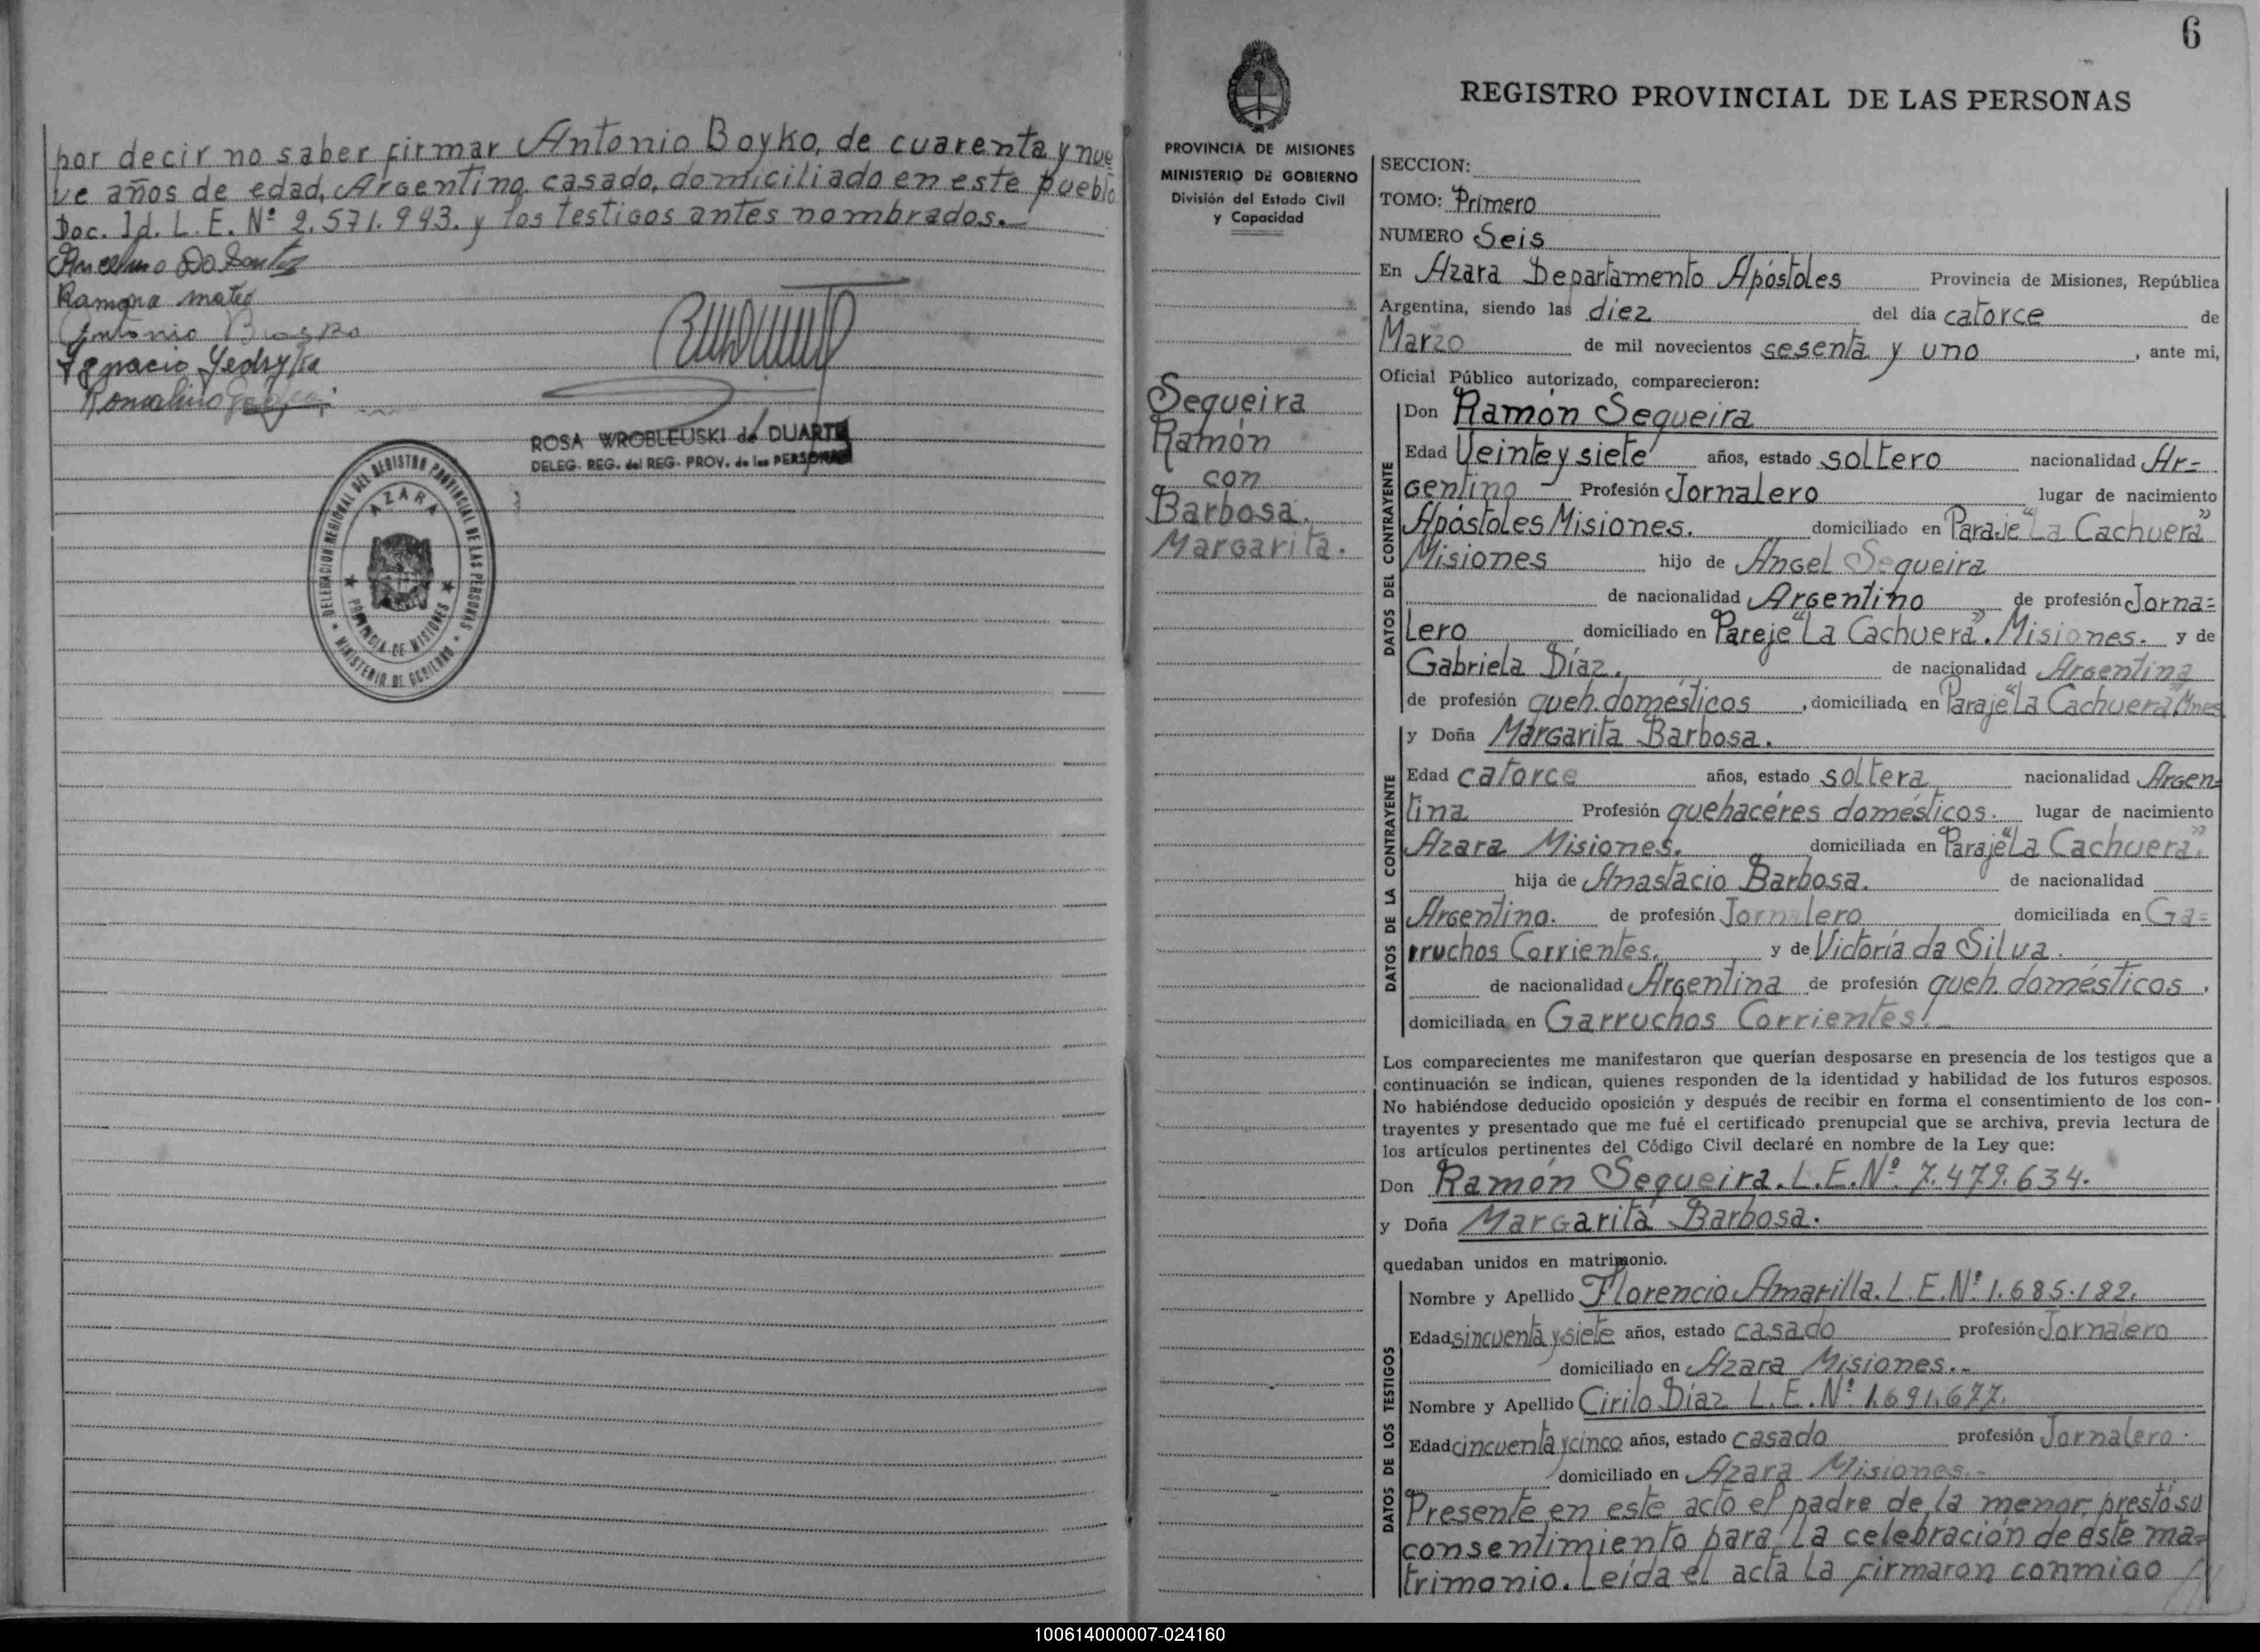 por decir no saber firmar Antonio Boyko, de cuarenta y nue
ve años de edad, Argentino casado, domiciliado en este pueblo
Doc. Id. L. E. Nº 2.571.943. y los testigos antes nombrados.
Ramona mateo
Antonio
Ignacio Yedryka
ROSA WROBLEUSKI de DUARTE
DELEG. REG. del REG. PROV. de las PERSONAS
DELEGACION REGIONAL DEL REGISTRO PROVINCIAL DE LAS PERSONAS
AZARA
PROVINCIA DE MISIONES
MINISTERIO DE GOBIERNO
6
REGISTRO PROVINCIAL DE LAS PERSONAS
PROVINCIA DE MISIONES
MINISTERIO DE GOBIERNO
División del Estado Civil
y Capacidad
Sequeira
Ramón
con
Barbosa.
Margarita.
SECCION:
TOMO: Primero
NUMERO Seis
En Azara Departamento Apóstoles Provincia de Misiones, República
Argentina, siendo las diez del día catorce de
Marzo de mil novecientos sesenta y uno, ante mi,
Oficial Público autorizado, comparecieron:
DATOS DEL CONTRAYENTE
Don Ramón Sequeira
Edad Veinte y siete años, estado soltero nacionalidad Ar=
gentino Profesión Jornalero lugar de nacimiento
Apóstoles Misiones. domiciliado en Paraje "La Cachuera"
Misiones hijo de Angel Sequeira
de nacionalidad Argentino de profesión Jorna=
lero domiciliado en Pareje "La Cachuera". Misiones. y de
Gabriela Díaz. de nacionalidad Argentina
de profesión queh. domésticos, domiciliada en Paraje "La Cachuera" Mnes
DATOS DE LA CONTRAYENTE
y Doña Margarita Barbosa.
Edad catorce años, estado soltera nacionalidad Argen=
tina Profesión quehacéres domésticos. lugar de nacimiento
Azara Misiones. domiciliada en Paraje "La Cachuera."
hija de Anastacio Barbosa. de nacionalidad
Argentino. de profesión Jornalero domiciliada en Ga=
rruchos Corrientes. y de Victoría da Silva.
de nacionalidad Argentina de profesión queh. domésticos.
domiciliada en Garruchos Corrientes.
Los comparecientes me manifestaron que querían desposarse en presencia de los testigos que a
continuación se indican, quienes responden de la identidad y habilidad de los futuros esposos.
No habiéndose deducido oposición y después de recibir en forma el consentimiento de los con-
trayentes y presentado que me fué el certificado prenupcial que se archiva, previa lectura de
los artículos pertinentes del Código Civil declaré en nombre de la Ley que:
Don Ramón Sequeira. L.E.Nº 7.479.634.
y Doña Margarita Barbosa.
quedaban unidos en matrimonio.
DATOS DE LOS TESTIGOS
Nombre y Apellido Florencio Amarilla. L.E.Nº 1.685.182.
Edad sincuenta y siete años, estado casado profesión Jornalero
domiciliado en Azara Misiones.-
Nombre y Apellido Cirilo Díaz L.E.Nº 1.691.677.
Edad cincuenta y cinco años, estado casado profesión Jornalero.
domiciliado en Azara Misiones.-
Presente en este acto el padre de la menor, prestó su
consentimiento para la celebración de éste ma=
trimonio. Leída el acta la firmaron conmigo
100614000007-024160